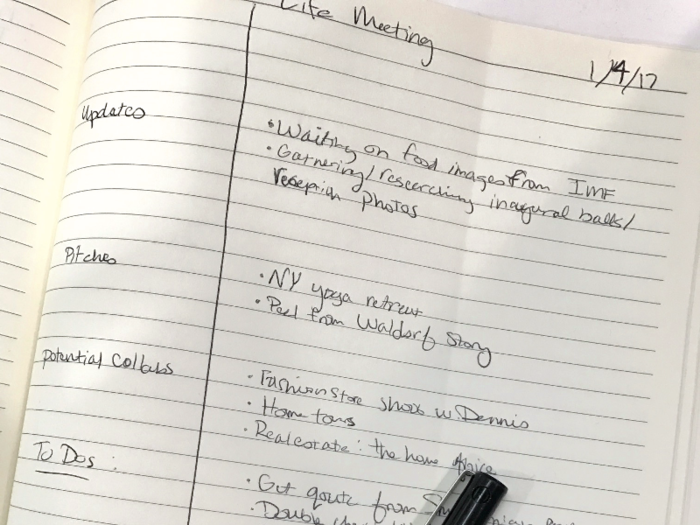 Life Meeting
1/4/17
Updates
• Waiting on food images from IMF
• Gathering/researching inaugural balls/
reception photos
Pitches
• NY yoga retreat
• Peel from Waldorf Story
Potential Collabs
• Fashion Store shoot w. Dennis
• Home tours
• Real estate: the home
To Dos:
• Get quote from
• Double